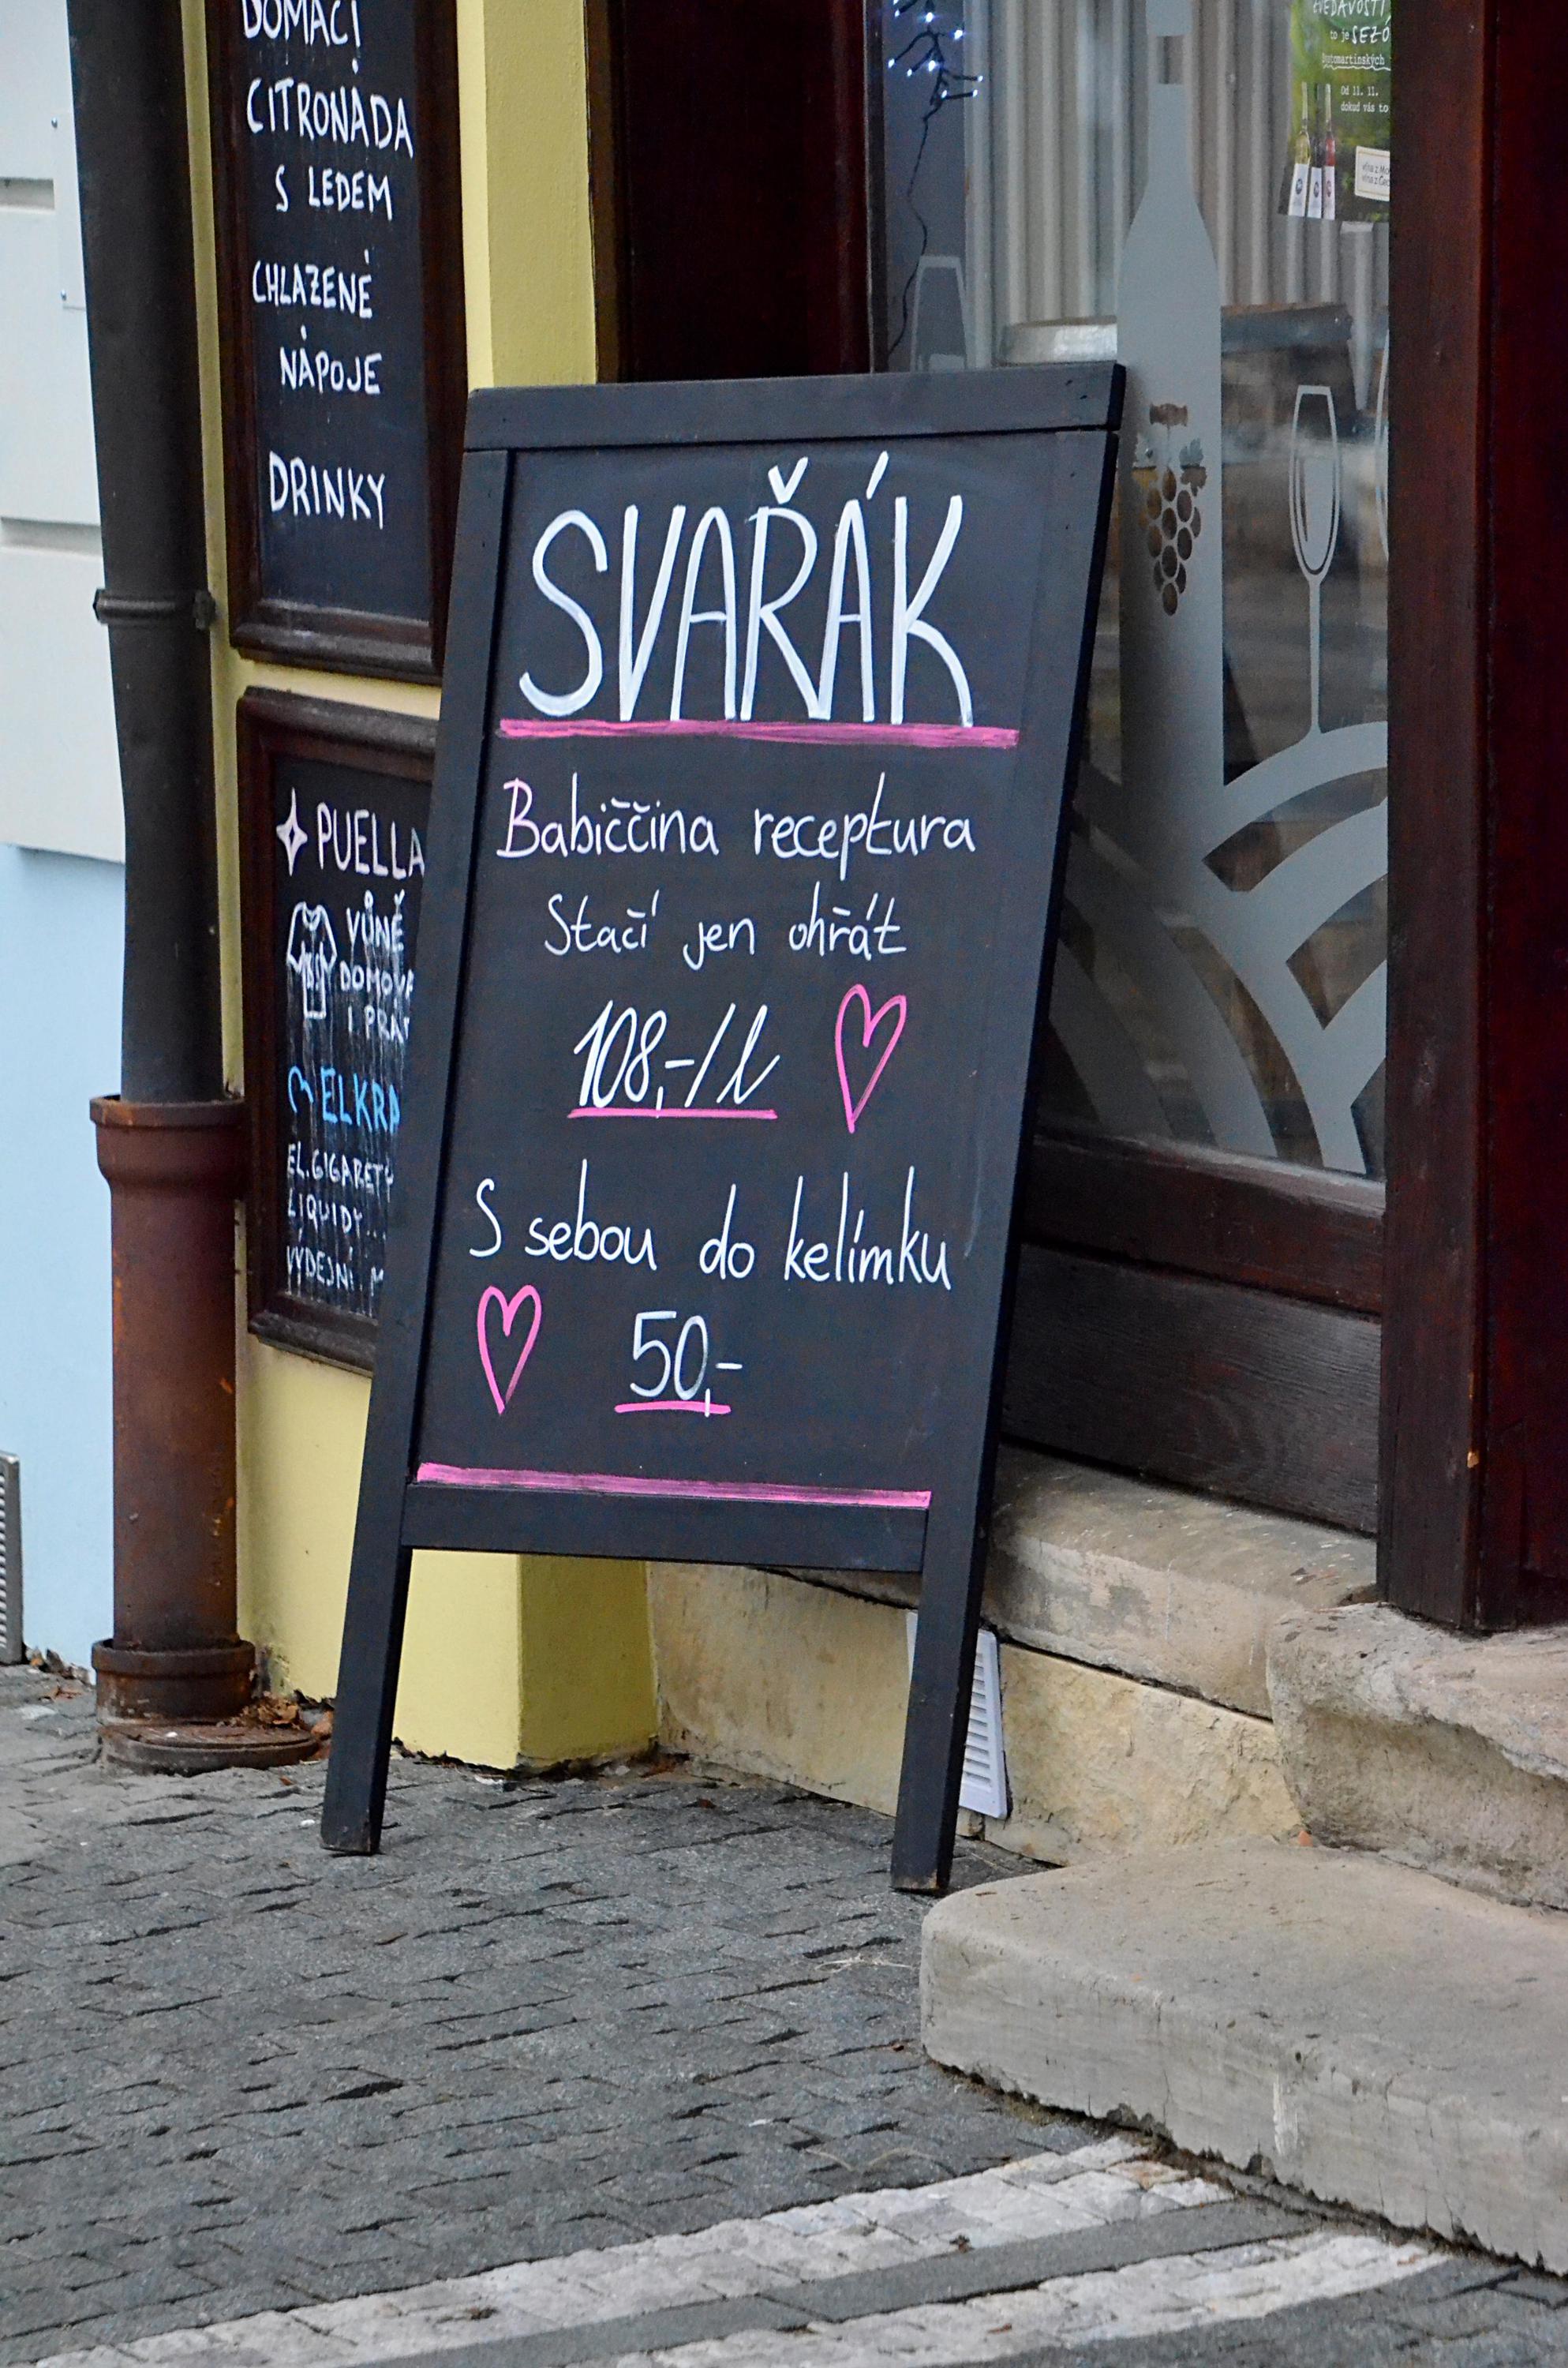 DOMÁCÍ
CITRONÁDA
S LEDEM
CHLAZENÉ
NÁPOJE
DRINKY
PUELLA
VŮNĚ
DOMOVA
I PRA
ELKRA
EL. CIGARETY
LIQUIDY...
VÝDEJNÍ M
SVAŘÁK
Babiččina receptura
Stačí jen ohřát
108,-/l
S sebou do kelímku
50,-
to je SEZÓ
Od 11. 11.
dokud vás to